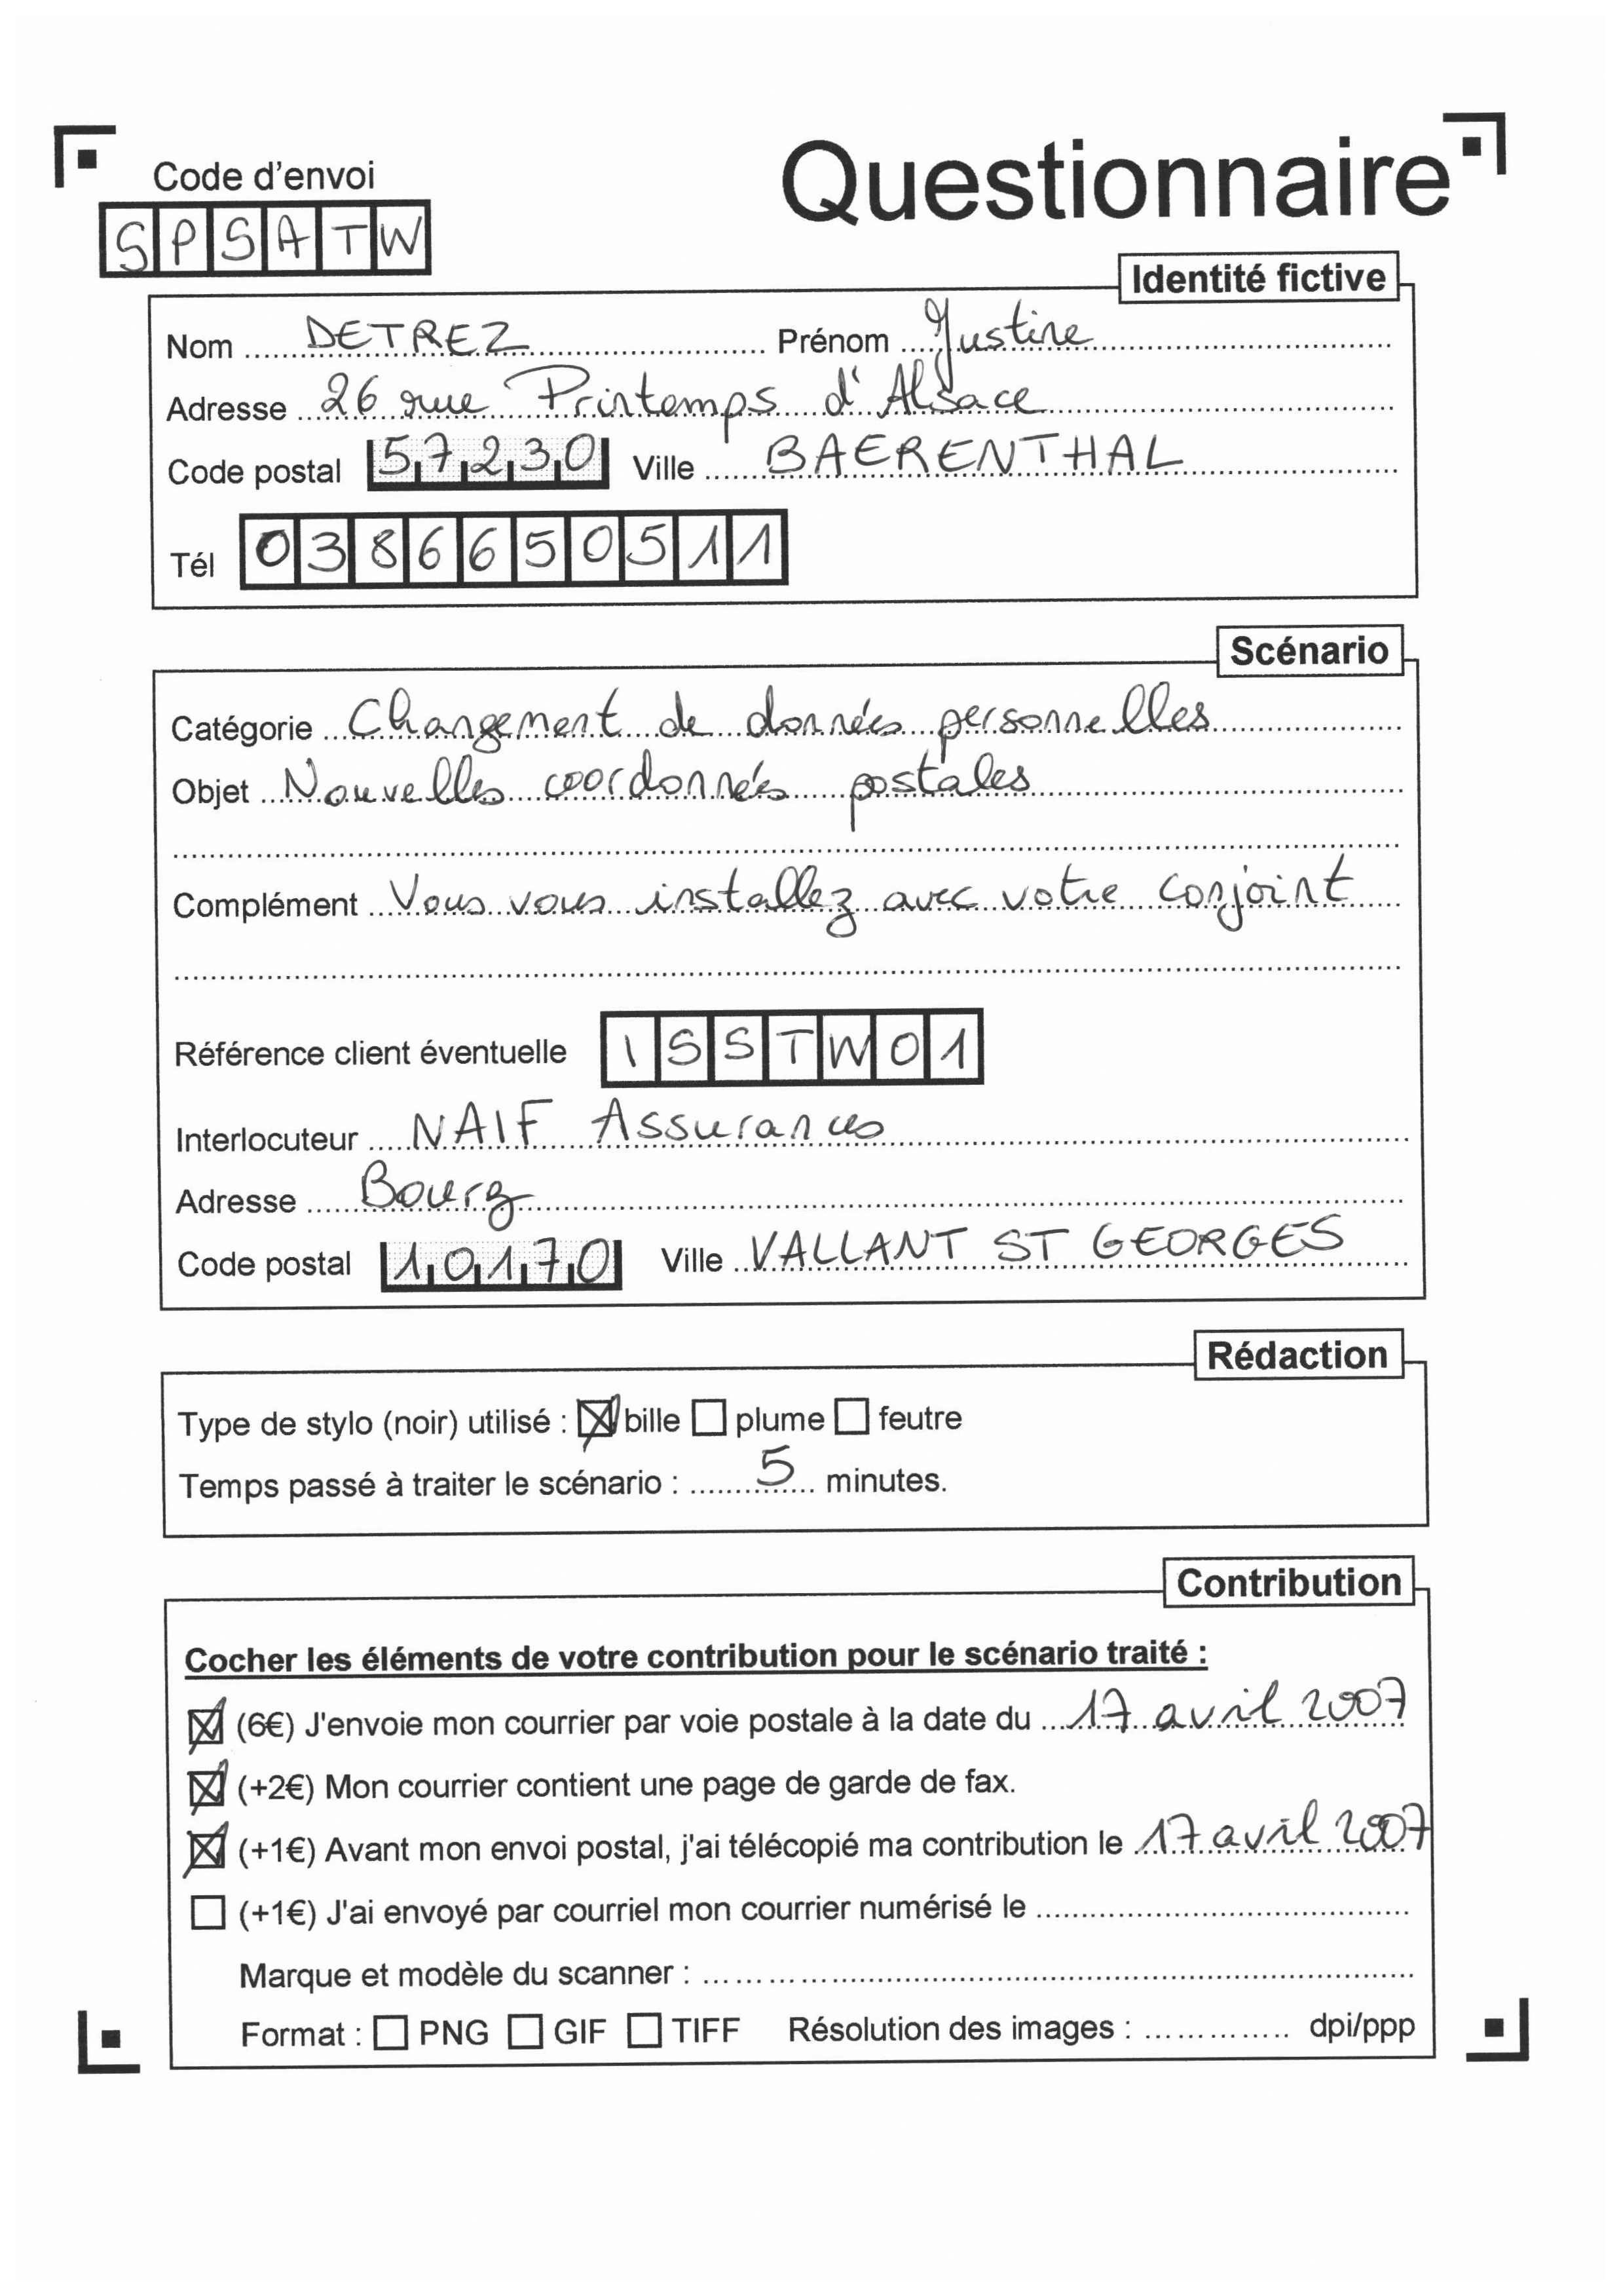 Code d'envoi
Questionnaire
SPSATW
Identité fictive
Nom DETREZ Prénom Justine
Adresse 26 rue Printemps d'Alsace
Code postal 57230 Ville BAERENTHAL
Tél 0386650511
Scénario
Catégorie Changement de données personnelles
Objet Nouvelles coordonnées postales
Complément Vous vous installez avec votre conjoint
Référence client éventuelle ISSTW01
Interlocuteur NAIF Assurances
Adresse Bourg
Code postal 10170 Ville VALLANT ST GEORGES
Rédaction
Type de stylo (noir) utilisé : ☒ bille ☐ plume ☐ feutre
Temps passé à traiter le scénario : 5 minutes.
Contribution
Cocher les éléments de votre contribution pour le scénario traité :
☒ (6€) J'envoie mon courrier par voie postale à la date du 17 avril 2007
☒ (+2€) Mon courrier contient une page de garde de fax.
☒ (+1€) Avant mon envoi postal, j'ai télécopié ma contribution le 17 avril 2007
☐ (+1€) J'ai envoyé par courriel mon courrier numérisé le
Marque et modèle du scanner :
Format : ☐ PNG ☐ GIF ☐ TIFF Résolution des images : dpi/ppp